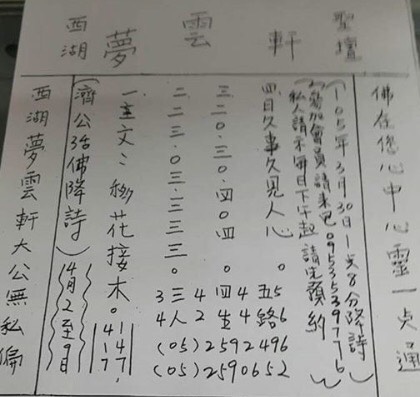 聖壇 軒 雲 夢 西湖
佛在您心中心靈一点通
(105年3月30日1点8分降詩)
(2)參加會員請來电0953539776
私人請示每日下午起 請先預約
四日久事久見人心。五路
三二0.三0.四0四。四生
二二三.0三.三三三。三人
一.主文:移花接木。
(濟公活佛降詩) 4月2至9日
西湖夢雲軒大公無私偏
34 42 4 56
(05)2592496
(05)2590652